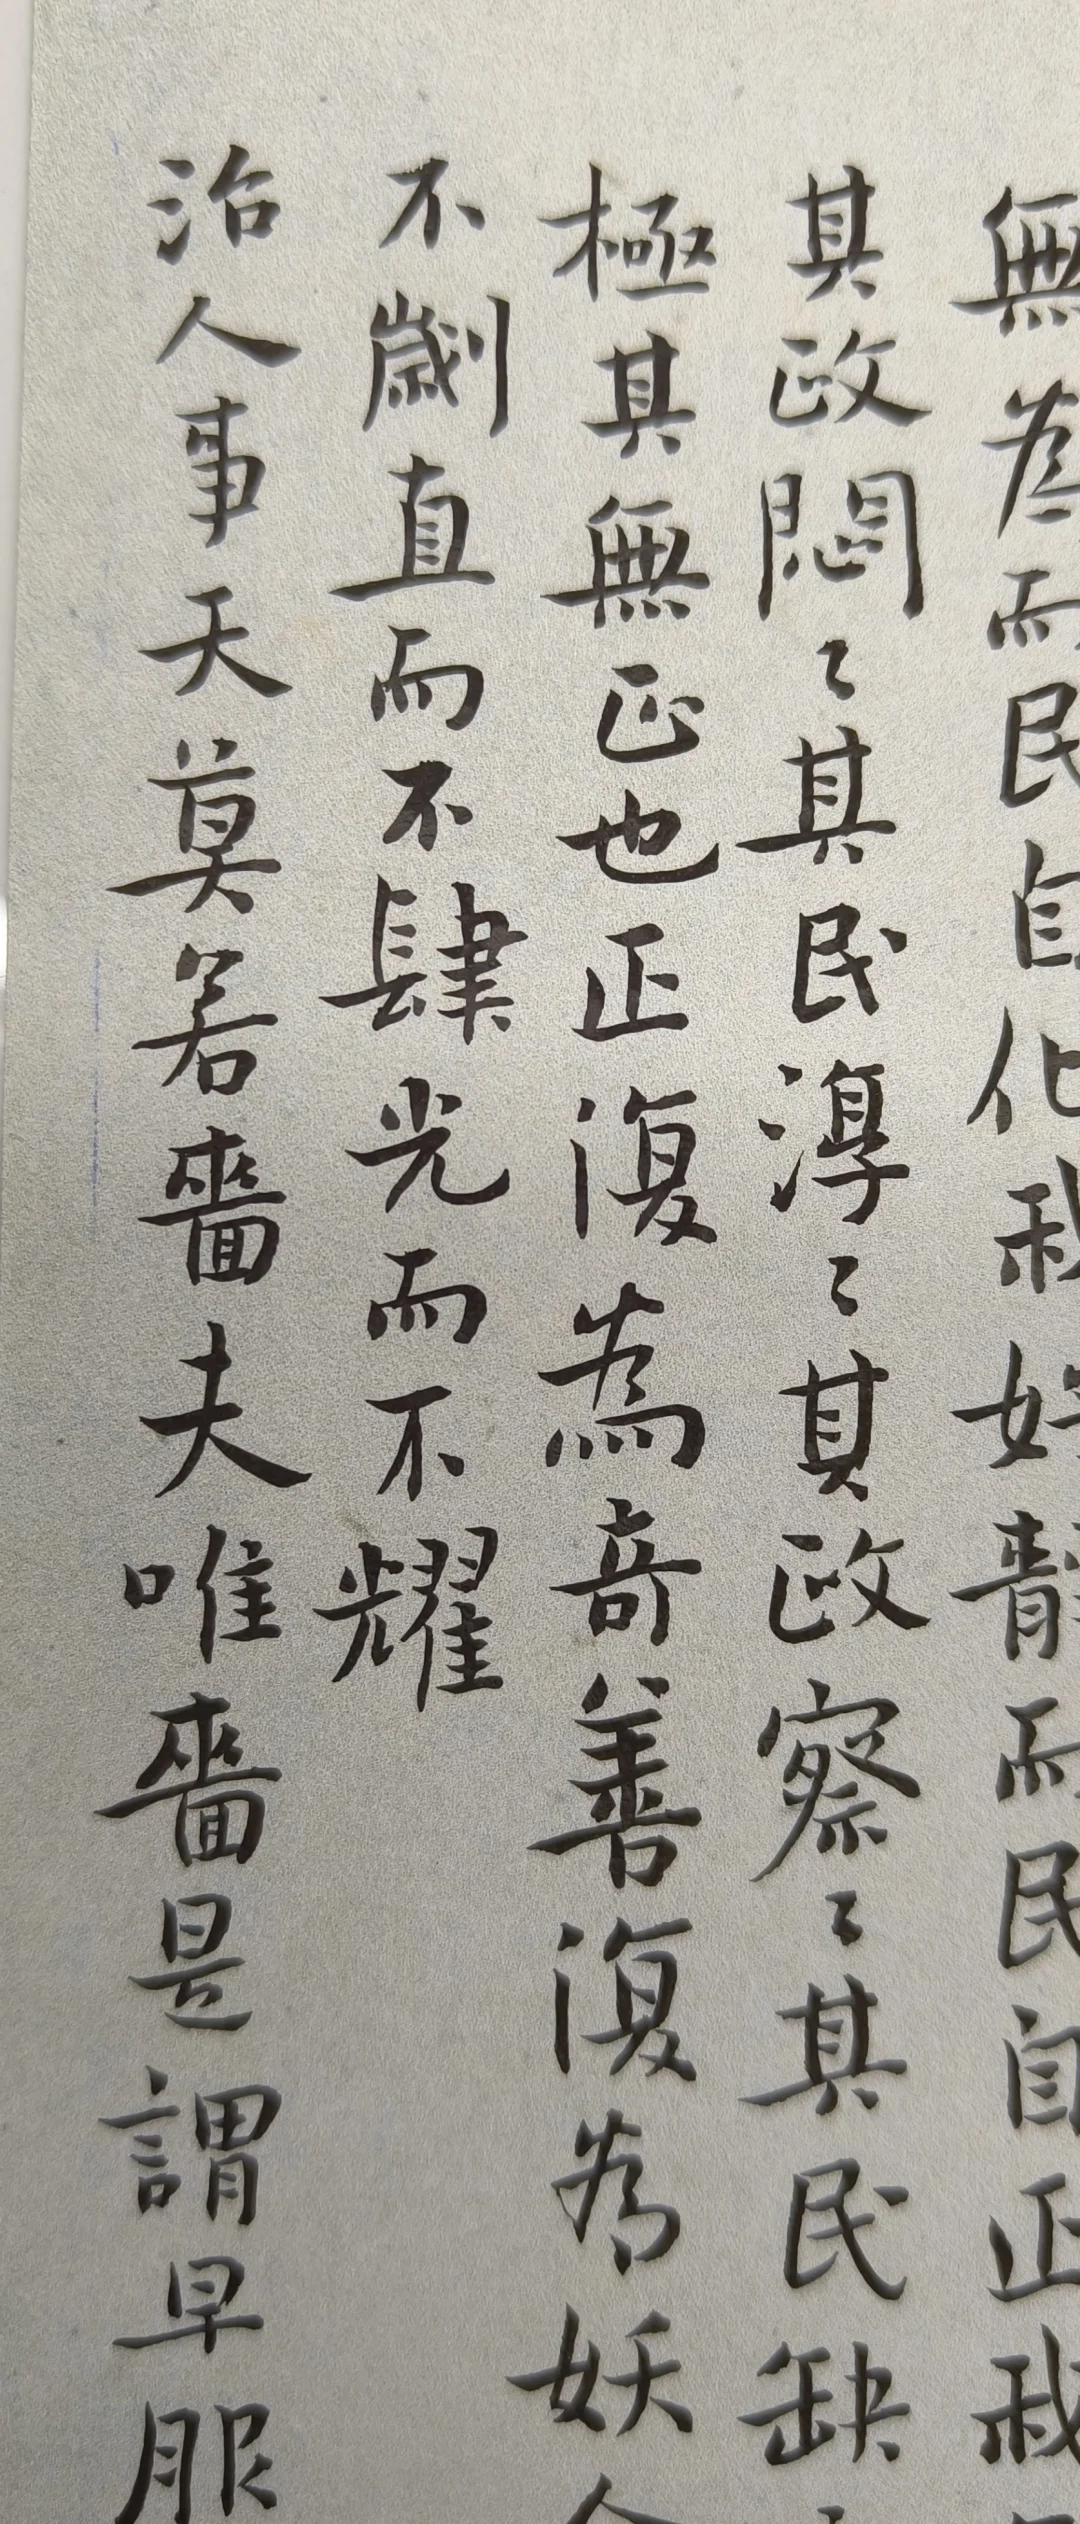 無為而民自化我好靜而民自正我
其政悶〻其民淳〻其政察〻其民缺
極其無正也正復為奇善復為妖
不劌直而不肆光而不耀
治人事天莫若嗇夫唯嗇是謂早服